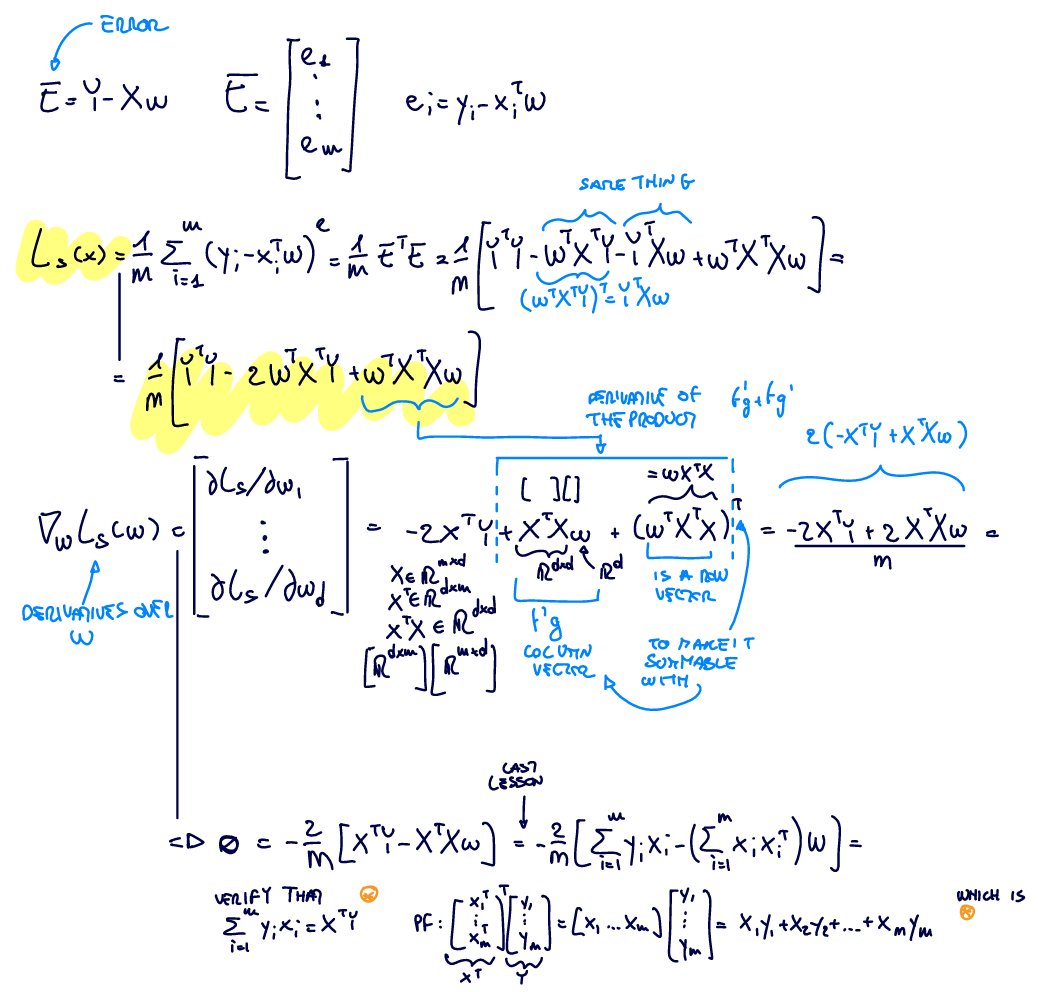 ERROR
Ē = Y - Xw   Ē = [e₁ ⋮ eₘ]   eᵢ = yᵢ - xᵢᵀw
SAME THING
Lₛ(x) = 1/m Σᵢ₌₁ᵐ (yᵢ - xᵢᵀw)² = 1/m ĒᵀĒ = 1/m [YᵀY - wᵀXᵀY - YᵀXw + wᵀXᵀXw] =
(wᵀXᵀY)ᵀ = YᵀXw
= 1/m [YᵀY - 2wᵀXᵀY + wᵀXᵀXw]
DERIVATIVE OF THE PRODUCT   f'g + fg'
2(-XᵀY + XᵀXw)
[ ][]   = wXᵀX
∇w Lₛ(w) = [∂Lₛ/∂w₁ ⋮ ∂Lₛ/∂w_d] = -2XᵀY + XᵀXw + (wᵀXᵀX)ᵀ = (-2XᵀY + 2XᵀXw)/m =
ℝᵈˣᵈ   ℝᵈ
DERIVATIVES OVER w
X ∈ ℝᵐˣᵈ
Xᵀ ∈ ℝᵈˣᵐ
XᵀX ∈ ℝᵈˣᵈ
[ℝᵈˣᵐ][ℝᵐˣᵈ]
f'g
COLUMN VECTOR
IS A ROW VECTOR
TO MAKE IT SUMMABLE WITH
LAST LESSON
<=> 0 = -2/m [XᵀY - XᵀXw] = -2/m [Σᵢ₌₁ᵐ yᵢxᵢ - (Σᵢ₌₁ᵐ xᵢxᵢᵀ)w] =
VERIFY THAT
Σᵢ₌₁ᵐ yᵢxᵢ = XᵀY
PF: [x₁ᵀ ⋮ xₘᵀ]ᵀ [y₁ ⋮ yₘ] = [x₁ ... xₘ] [y₁ ⋮ yₘ] = x₁y₁ + x₂y₂ + ... + xₘyₘ
Xᵀ   Y
WHICH IS